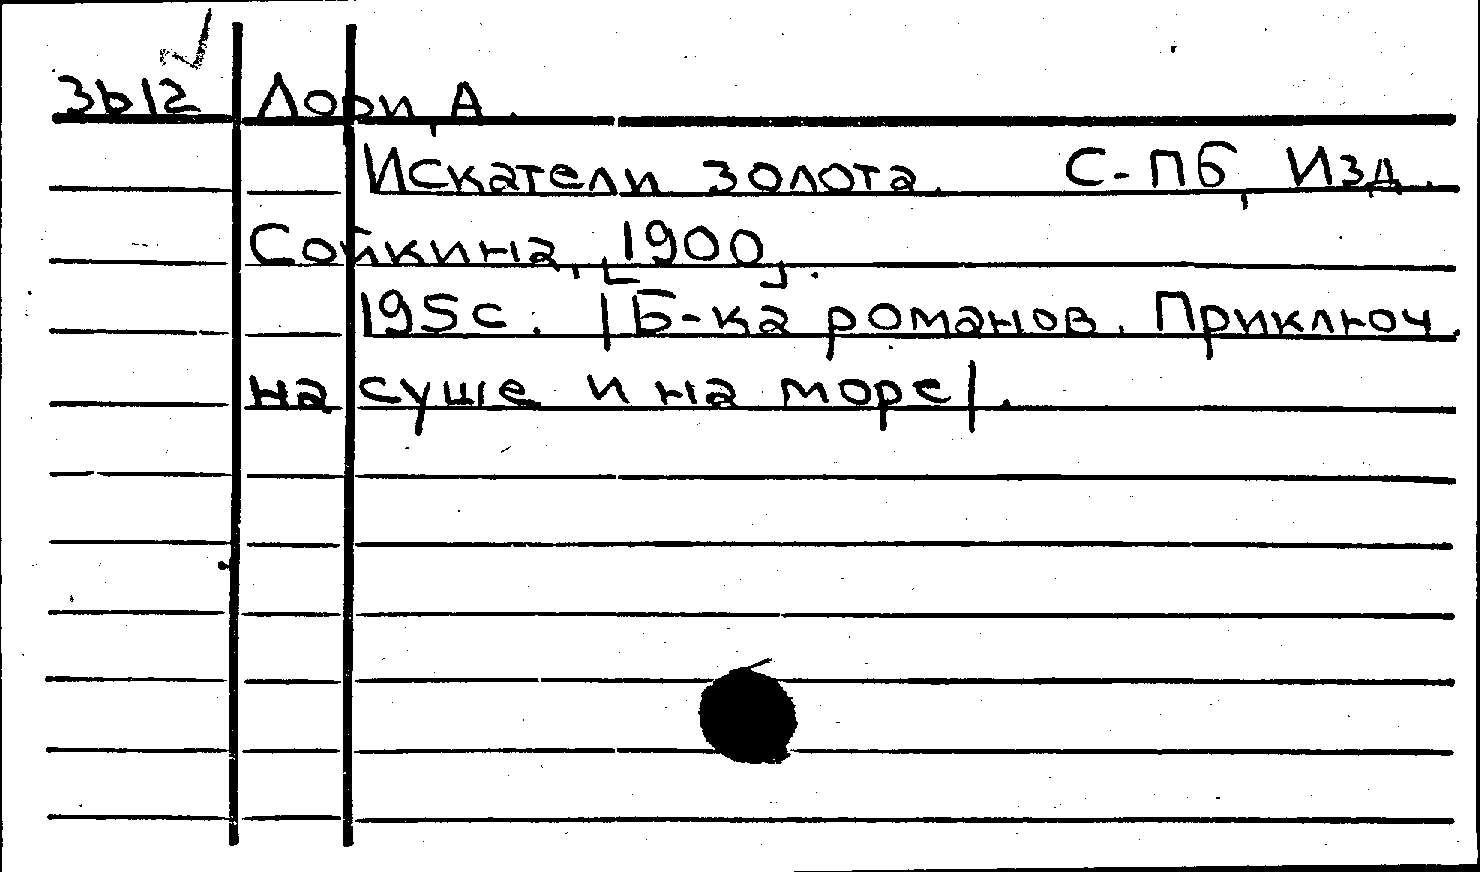 3b12 Дори, А.
Искатели золота. С-Пб, Изд.
Сойкина, [1900].
195с. |Б-ка романов. Приключ.
на суше и на море|.